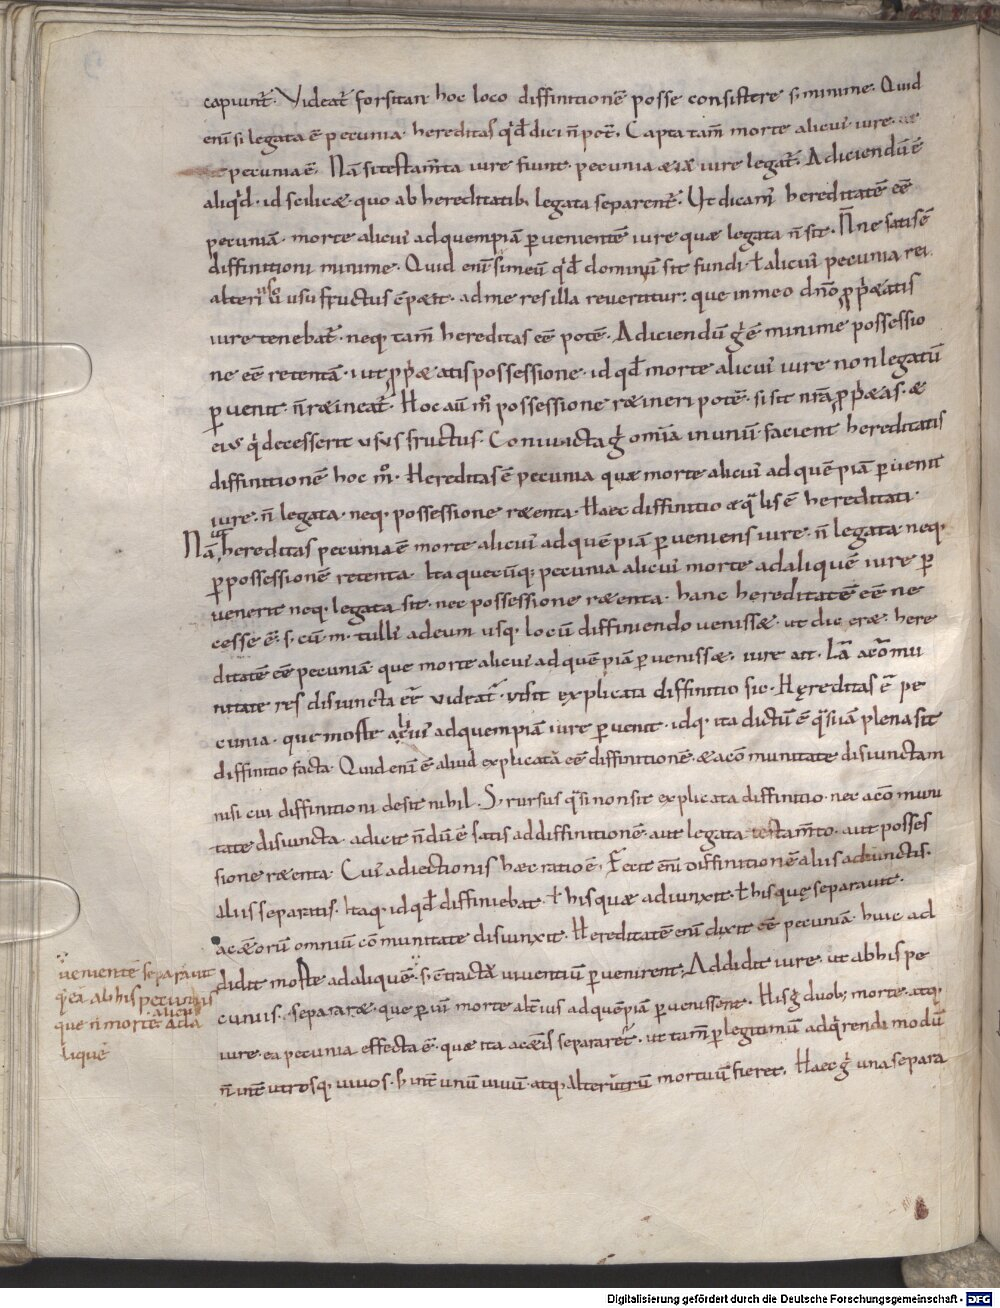 capiunt̄. Videat̄ forsitan hoc loco diffinitionē posse consistere s; minime. Quid
enī si legata ē pecunia. hereditas qd̄ dici n̄ pot̄. Capta tam̄ morte alicui iure
pecunia ē. Nā si testam̄ta iure fiunt. pecunia &iā iure legat̄. Adiciendū ē
aliqd̄. id scilic&. quo ab hereditatib; legata separent̄. Ut dicam̄ hereditatē eē
pecuniā. morte alicui ad quempiā puenientē iure quae legata n̄ sit. N̄ne satis ē
diffinitioni minime. Quid enī si meū qd̄ dominiū sit fundi. ł alicui pecunia rei
alteri uso usu fructus ē p&it. ad me res illa reuertitur; que in meo dn̄o pp&atis
iure tenebat̄. neq; tam̄ hereditas eē potē. Adiciendū g̊ ē minime possessio
ne eē retentā. ut pp&atis possessione. id qd̄ morte alicui iure non legatū
puenit. n̄ r&ineat̄. Hoc aū m̊ possessione r&ineri potē. si sit nr̄a pp&as. &
eius q decesserit usus fructus. Coniuncta g̊ om̄ia in unū facient hereditatis
diffinitionē hoc m̊. Hereditas ē pecunia quae morte alicui ad quēpiā puenit
iure. n̄ legata. neq; possessione r&enta. Haec diffinitio aeqlis ē hereditati.
Nā ut hereditas pecunia ē morte alicui ad quēpiā pueniens iure. n̄ legata neq;
p possessionē retenta. Ita quecūq; pecunia alicui morte ad aliquē iure p
uenerit neq; legata sit. nec possessione r&enta. hanc hereditatē eē ne
cesse ē. s; cū m. tulli ad eum usq; locū diffiniendo uenisset. ut dic er&. here
ditatē eē pecuniā que morte alicui ad quēpiā puenisset. iure ait. Iā a com̄u
nitate res disiuncta ē & videat̄ ut sit explicata diffinitio sic. Hęreditas ē pe
cunia. que morte alicui ad quempiā iure puenit. idq; ita dictū ē q̄si iā plena sit
diffinitio facta. Quid enī ē aliud explicatā eē diffinitionē & a cōmunitate disiunctam
nisi cui diffinitioni desit nihil. S; rursus q̄si non sit explicata diffinitio. nec a cōmuni
tate disiuncta. adicit n̄dū ē satis ad diffinitionē. aut legata testam̄to. aut posses
sione r&enta. Cui adiectionis haec ratio ē. Fecit enī diffinitionē aliis adiunctis.
aliis separatis. Itaq; id qd̄ diffiniebat. ł his quae adiunxit. ł his quę separauit.
a c&orū omniū cōmunitate disiunxit. Hereditatē enī dixit eē pecuniā. huic ad
didit morte ad aliquē. s; ē tractā uiuentiū puenirent. Addidit iure. ut ab his pe
cuniis. separar&. que p uī morte alt̄ius ad quēpiā peruenissent. His g̊ duob; morte. atq;
iure. ea pecunia effecta ē. quae ita a c&is separaret̄. ut tam̄ p legitimū adq̄rendi modū
n̄ int̄ utrosq; uiuos. s; int̄ unū uiuū. atq; alterutrū mortuū fieret. Haec g̊ una separa
uenientē separauit
qd̄ eā ab his pecuniis
alicui
que n̄ morte ad a
liquē
Digitalisierung gefördert durch die Deutsche Forschungsgemeinschaft - DFG